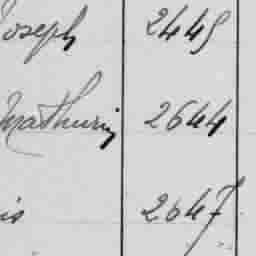 Joseph 2449
Mathurin 2644
is 2647